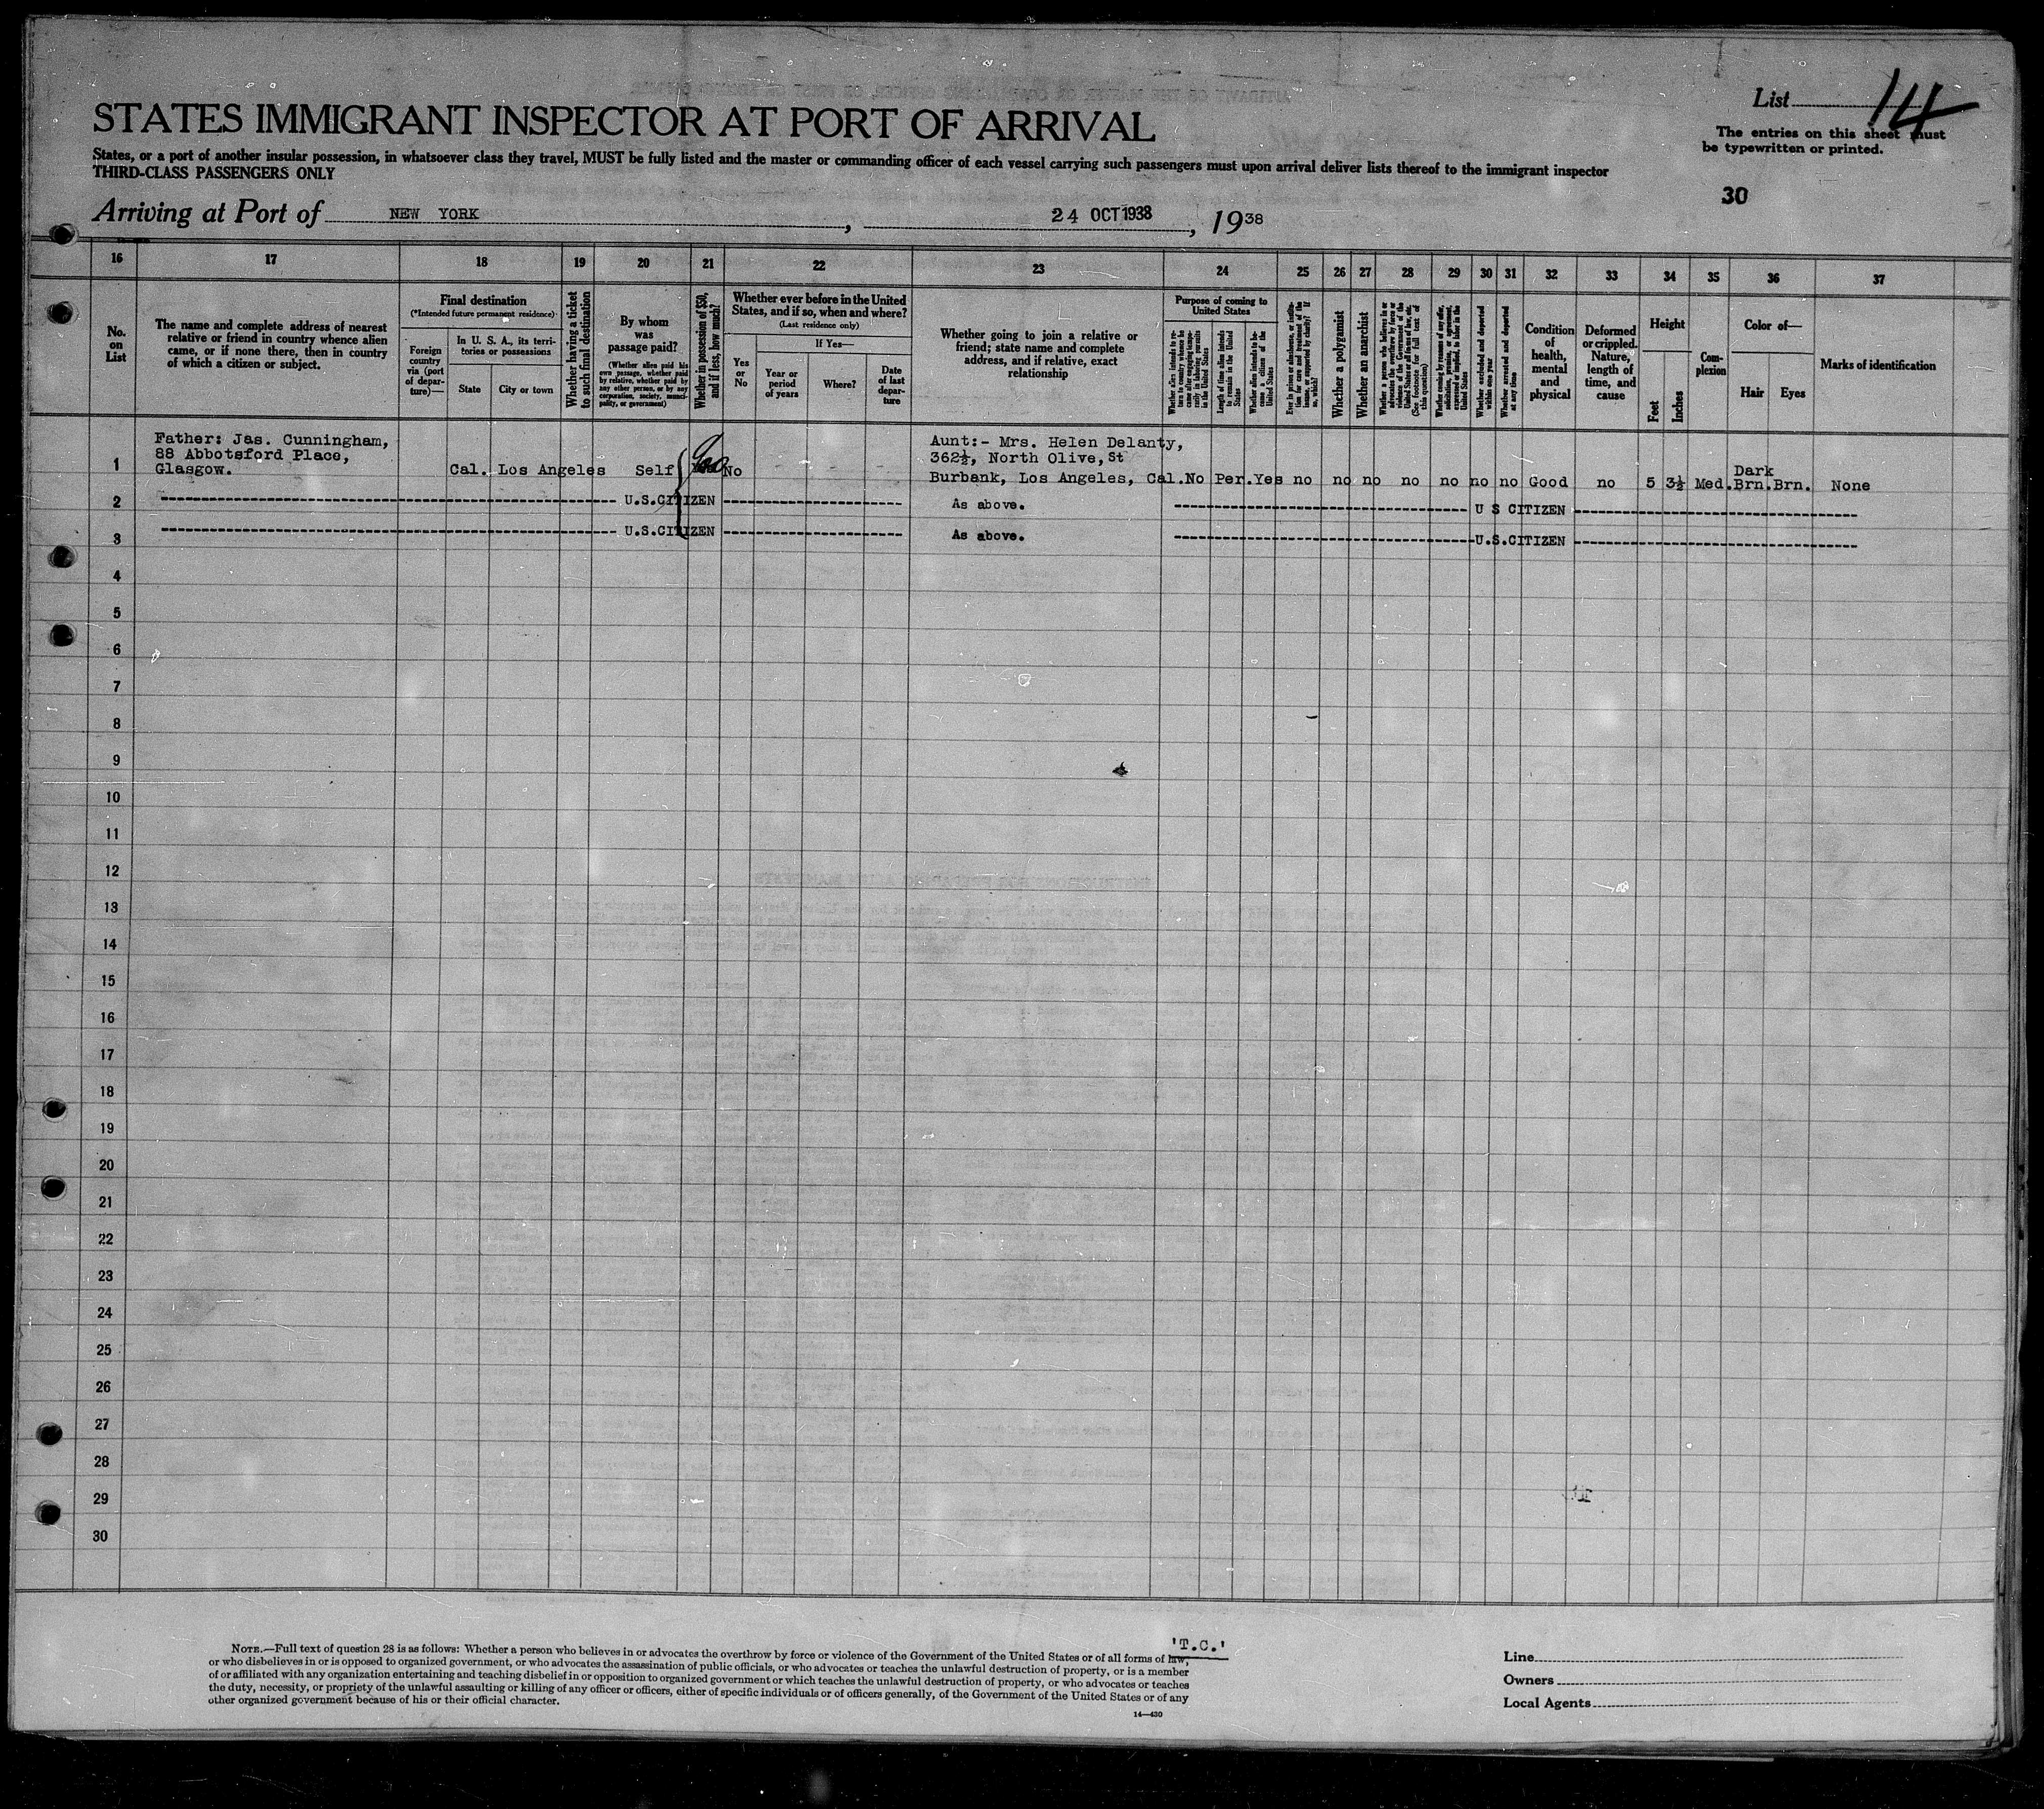 List 14
STATES IMMIGRANT INSPECTOR AT PORT OF ARRIVAL
The entries on this sheet must
be typewritten or printed.
States, or a port of another insular possession, in whatsoever class they travel, MUST be fully listed and the master or commanding officer of each vessel carrying such passengers must upon arrival deliver lists thereof to the immigrant inspector
THIRD-CLASS PASSENGERS ONLY
30
Arriving at Port of NEW YORK, 24 OCT 1938, 1938
16 17 18 19 20 21 22 23 24 25 26 27 28 29 30 31 32 33 34 35 36 37
No.
on
List
The name and complete address of nearest
relative or friend in country whence alien
came, or if none there, then in country
of which a citizen or subject.
Final destination
(*Intended future permanent residence)
Foreign
country
via (port
of depar-
ture)—
In U. S. A., its terri-
tories or possessions
State
City or town
Whether having a ticket
to such final destination
By whom
was
passage paid?
(Whether alien paid his
own passage, whether paid
by relative, whether paid by
any other person, or by any
corporation, society, munici-
pality, or government)
Whether in possession of $50,
and if less, how much?
Whether ever before in the United
States, and if so, when and where?
(Last residence only)
Yes
or
No
If Yes—
Year or
period
of years
Where?
Date
of last
depar-
ture
Whether going to join a relative or
friend; state name and complete
address, and if relative, exact
relationship
Purpose of coming to
United States
Whether alien intends to re-
turn to country whence he
came after engaging tempo-
rarily in laboring pursuits
in the United States
Length of time alien intends
to remain in the United
States
Whether alien intends to be-
come a citizen of the
United States
Ever in prison or almshouse, or institu-
tion for care and treatment of the
insane, or supported by charity? If
so, which?
Whether a polygamist
Whether an anarchist
Whether a person who believes in or
advocates the overthrow by force or
violence of the Government of the
United States or all forms of law, etc.
(See footnote for full text of
this question)
Whether coming by reason of any offer,
solicitation, promise, or agreement,
expressed or implied, to labor in the
United States
Whether excluded and deported
within one year
Whether arrested and deported
at any time
Condition
of
health,
mental
and
physical
Deformed
or crippled.
Nature,
length of
time, and
cause
Height
Feet
Inches
Com-
plexion
Color of—
Hair
Eyes
Marks of identification
Father: Jas. Cunningham,
88 Abbotsford Place,
1 Glasgow. Cal. Los Angeles Self No
Aunt:- Mrs. Helen Delanty,
362½, North Olive, St
Burbank, Los Angeles, Cal. No Per. Yes no no no no no no no Good no 5 3½ Med. Dark Brn. Brn. None
2 U.S.CITIZEN As above. U S CITIZEN
3 U.S.CITIZEN As above. U.S.CITIZEN
4
5
6
7
8
9
10
11
12
13
14
15
16
17
18
19
20
21
22
23
24
25
26
27
28
29
30
'T.C.'
NOTE.—Full text of question 28 is as follows: Whether a person who believes in or advocates the overthrow by force or violence of the Government of the United States or of all forms of law,
or who disbelieves in or is opposed to organized government, or who advocates the assassination of public officials, or who advocates or teaches the unlawful destruction of property, or is a member
of or affiliated with any organization entertaining and teaching disbelief in or opposition to organized government or which teaches the unlawful destruction of property, or who advocates or teaches
the duty, necessity, or propriety of the unlawful assaulting or killing of any officer or officers, either of specific individuals or of officers generally, of the Government of the United States or of any
other organized government because of his or their official character.
14—430
Line
Owners
Local Agents